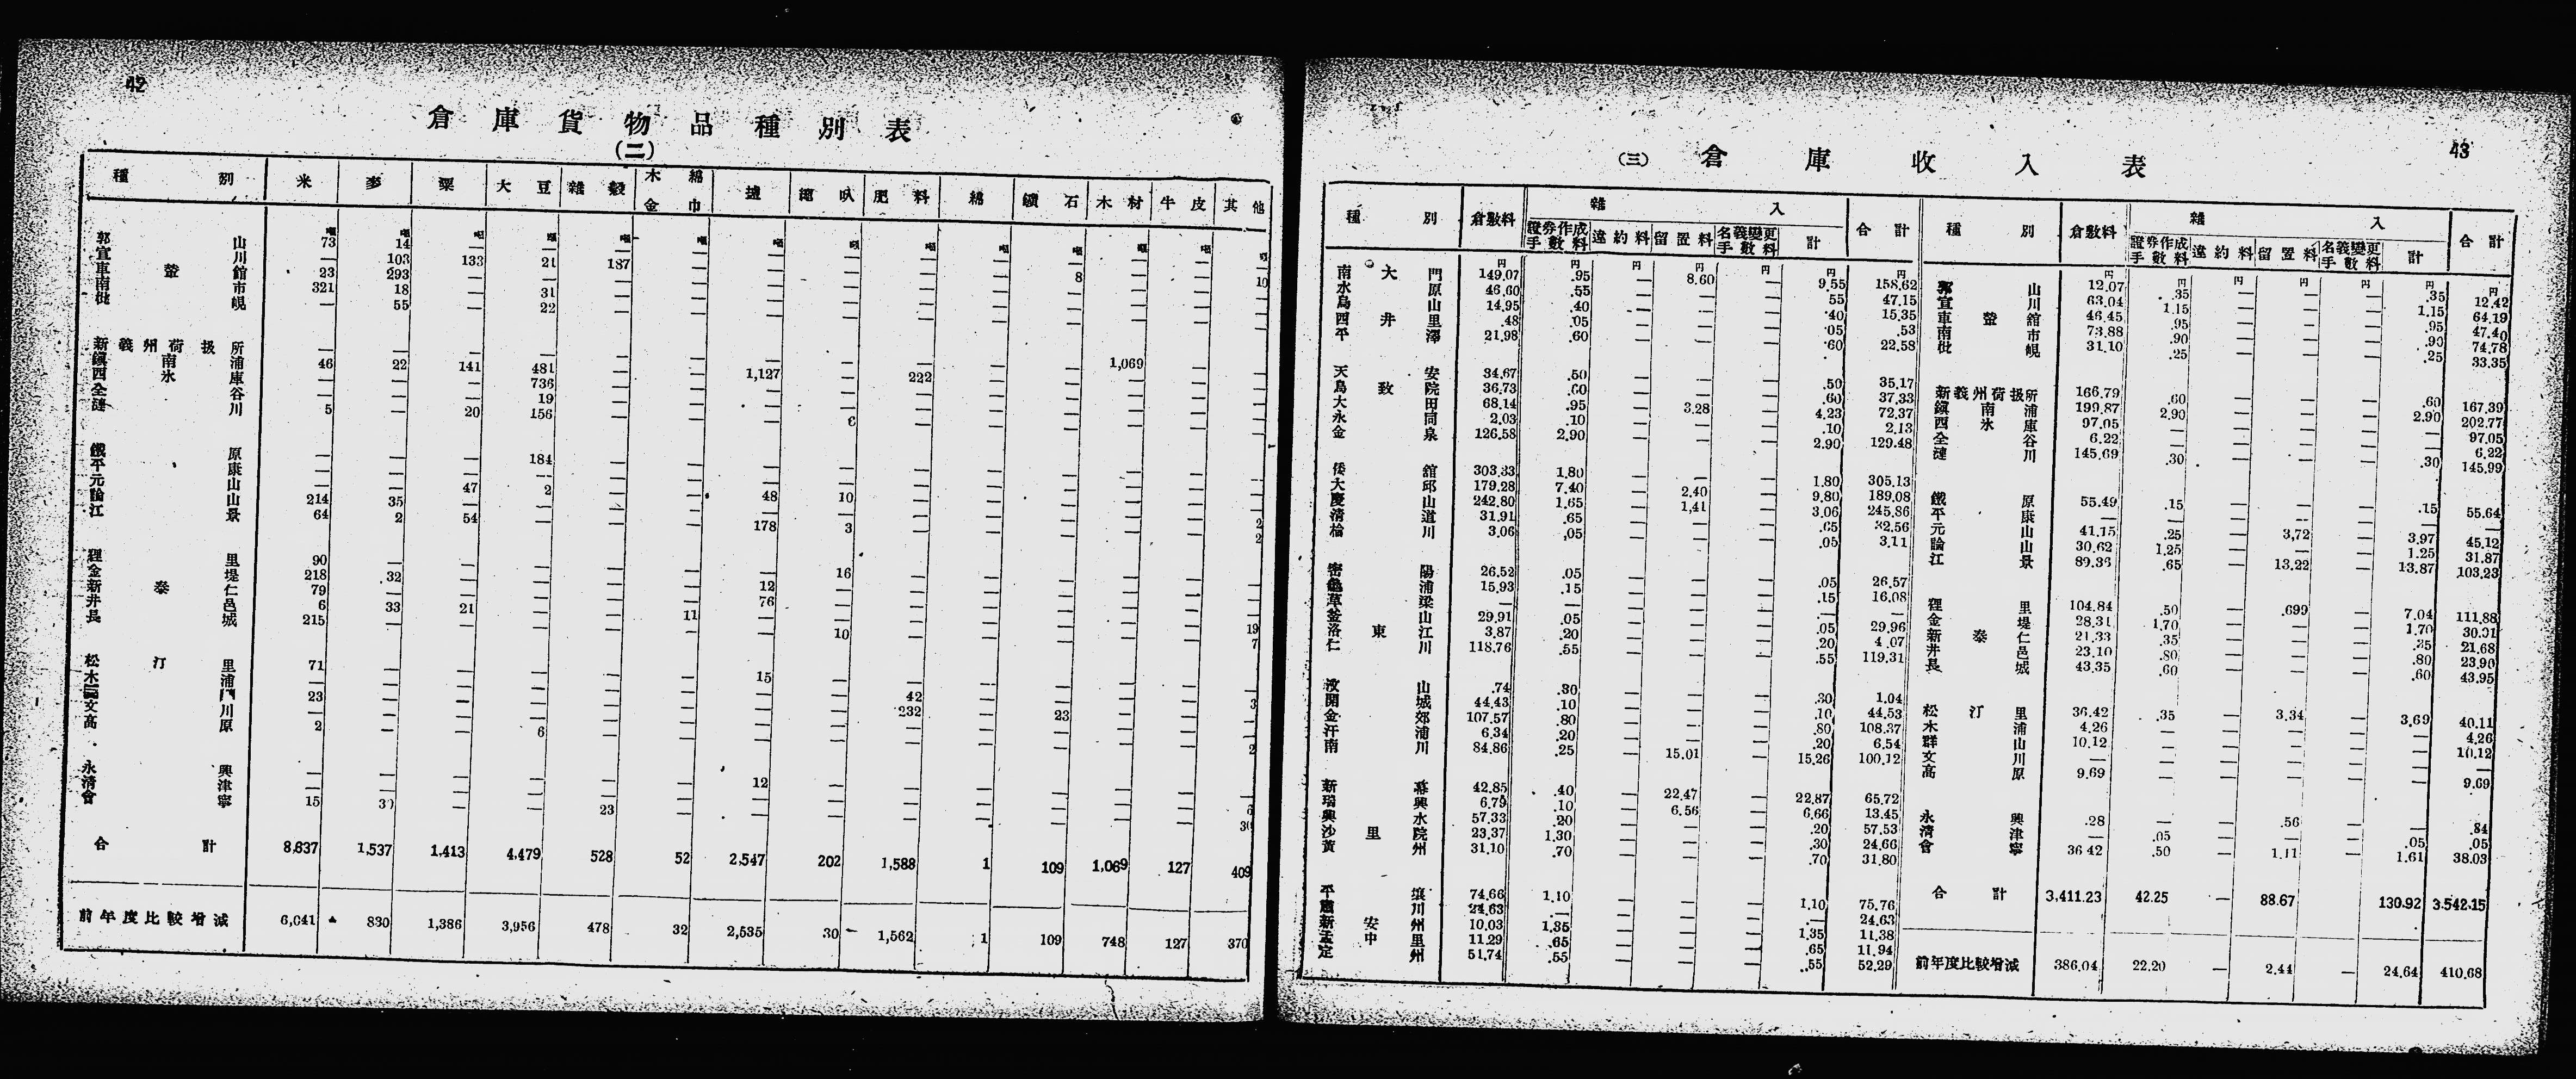 42
倉庫貨物品種別表
(二)
種別 米 麥 粟 大豆 雜穀 木綿金巾 鹽 繩叺 肥料 綿 鑛石 木材 牛皮 其他
郭山 73 14 — — — — — — — — — — — —
宣川 — 103 133 21 187 — — — — — — — —
車輦館 23 293 — — — — — — — — 8 — — 10
南市 321 18 — 31 — — — — — — — — — —
枇峴 — 55 — 22 — — — — — — — — — —
新義州荷扱所 — — — — — — — — — — — 1,069 — —
鎭南浦 46 22 141 481 — — 1,127 — 222 — — — — —
西氷庫 — — — 736 — — — — — — — — — —
全谷 — — — 19 — — — — — — — — — —
漣川 5 — 20 156 — — — 6 — — — — — —
鐵原 — — — 184 — — — — — — — — — —
平康 — — — — — — — — — — — — — —
元山 — — 47 2 — — 48 10 — — — — — —
論山 214 35 — — — — — — — — — — — 2
江景 64 2 54 — — — 178 3 — — — — — 2
裡里 90 — — — — — — 16 — — — — — —
金堤 218 32 — — — — 12 — — — — — — —
新泰仁 79 — — — — — 76 — — — — — — —
井邑 6 33 21 — — 11 — — — — — — — 19
長城 215 — — — — — — 10 — — — — — 7
松汀里 71 — — — — — 15 — — — — — — —
木浦 — — — — — — — — 42 — — — — 3
23 — — — — — — — 232 — 23 — — —
文川 — — — — — — — — — — — — — —
高原 2 — — 6 — — — — — — — — — 2
永興 — — — — — — 12 — — — — — — —
清津 — — — — — — — — — — — — — 6
會寧 15 30 — — 23 — — — — — — — — 30
合計 8,637 1,537 1,413 4,479 528 52 2,547 202 1,588 1 109 1,069 127 409
前年度比較增減 6,041 ▲ 830 1,386 3,956 478 32 2,535 30 1,562 1 109 748 127 370
43
(三) 倉庫收入表
種別 倉敷料 雜入 合計
證券作成手數料 違約料 留置料 名義變更手數料 計
南大門 149.07 .95 — 8.60 — 9.55 158.62
水原 46.60 .55 — — — 55 47.15
烏山 14.95 .40 — — — .40 15.35
西井里 .48 .05 — — — .05 .53
平澤 21.98 .60 — — — .60 22.58
天安 34.67 .50 — — — .50 35.17
鳥致院 36.73 .60 — — — .60 37.33
大田 68.14 .95 — 3.28 — 4.23 72.37
永同 2.03 .10 — — — .10 2.13
金泉 126.58 2.90 — — — 2.90 129.48
倭館 303.33 1.80 — — — 1.80 305.13
大邱 179.28 7.40 — 2.40 — 9.80 189.08
慶山 242.80 1.65 — 1.41 — 3.06 245.86
清道 31.91 .65 — — — .65 32.56
楡川 3.06 .05 — — — .05 3.11
密陽 26.52 .05 — — — .05 26.57
龜浦 15.93 .15 — — — .15 16.08
草梁 — — — — — — —
釜山 29.91 .05 — — — .05 29.96
洛東江 3.87 .20 — — — .20 4.07
仁川 118.76 .55 — — — .55 119.31
汶山 .74 .30 — — — .30 1.04
開城 44.43 .10 — — — .10 44.53
金郊 107.57 .80 — — — .80 108.37
汗浦 6.34 .20 — — — .20 6.54
南川 84.86 .25 — 15.01 — 15.26 100.12
新幕 42.85 .40 — 22.47 — 22.87 65.72
瑞興 6.79 .10 — 6.56 — 6.66 13.45
興水 57.33 .20 — — — .20 57.53
沙里院 23.37 1.30 — — — .30 24.66
黃州 31.10 .70 — — — .70 31.80
平壤 74.66 1.10 — — — 1.10 75.76
川 24.63 — — — — — 24.63
新安州 10.03 1.35 — — — 1.35 11.38
孟中里 11.29 .65 — — — .65 11.94
定州 51.74 .55 — — — .55 52.29
種別 倉敷料 雜入 合計
證券作成手數料 違約料 留置料 名義變更手數料 計
郭山 12.07 .35 — — — .35 12.42
宣川 63.04 1.15 — — — 1.15 64.19
車輦館 46.45 .95 — — — .95 47.40
南市 73.88 .90 — — — .90 74.78
枇峴 31.10 .25 — — — .25 33.35
新義州荷扱所 166.79 .60 — — — .60 167.39
鎭南浦 199.87 2.90 — — — 2.90 202.77
西氷庫 97.05 — — — — — 97.05
全谷 6.22 — — — — — 6.22
漣川 145.69 .30 — — — .30 145.99
鐵原 55.49 .15 — — — .15 55.64
平康 — — — — — — —
元山 41.15 .25 — 3.72 — 3.97 45.12
論山 30.62 1.25 — — — 1.25 31.87
江景 89.36 .65 — 13.22 — 13.87 103.23
裡里 104.84 .50 — .699 — 7.04 111.88
金堤 28.31 1.70 — — — 1.70 30.01
新泰仁 21.33 .35 — — — .35 21.68
井邑 23.10 .80 — — — .80 23.90
長城 43.35 .60 — — — .60 43.95
松汀里 36.42 .35 — 3.34 — 3.69 40.11
木浦 4.26 — — — — — 4.26
群山 10.12 — — — — — 10.12
文川 — — — — — — —
高原 9.69 — — — — — 9.69
永興 .28 — — .56 — — .84
清津 — .05 — — — .05 .05
會寧 36.42 .50 — 1.11 — 1.61 38.03
合計 3,411.23 42.25 — 88.67 130.92 3.542.15
前年度比較增減 386.04 22.20 — 2.44 — 24.64 410.68